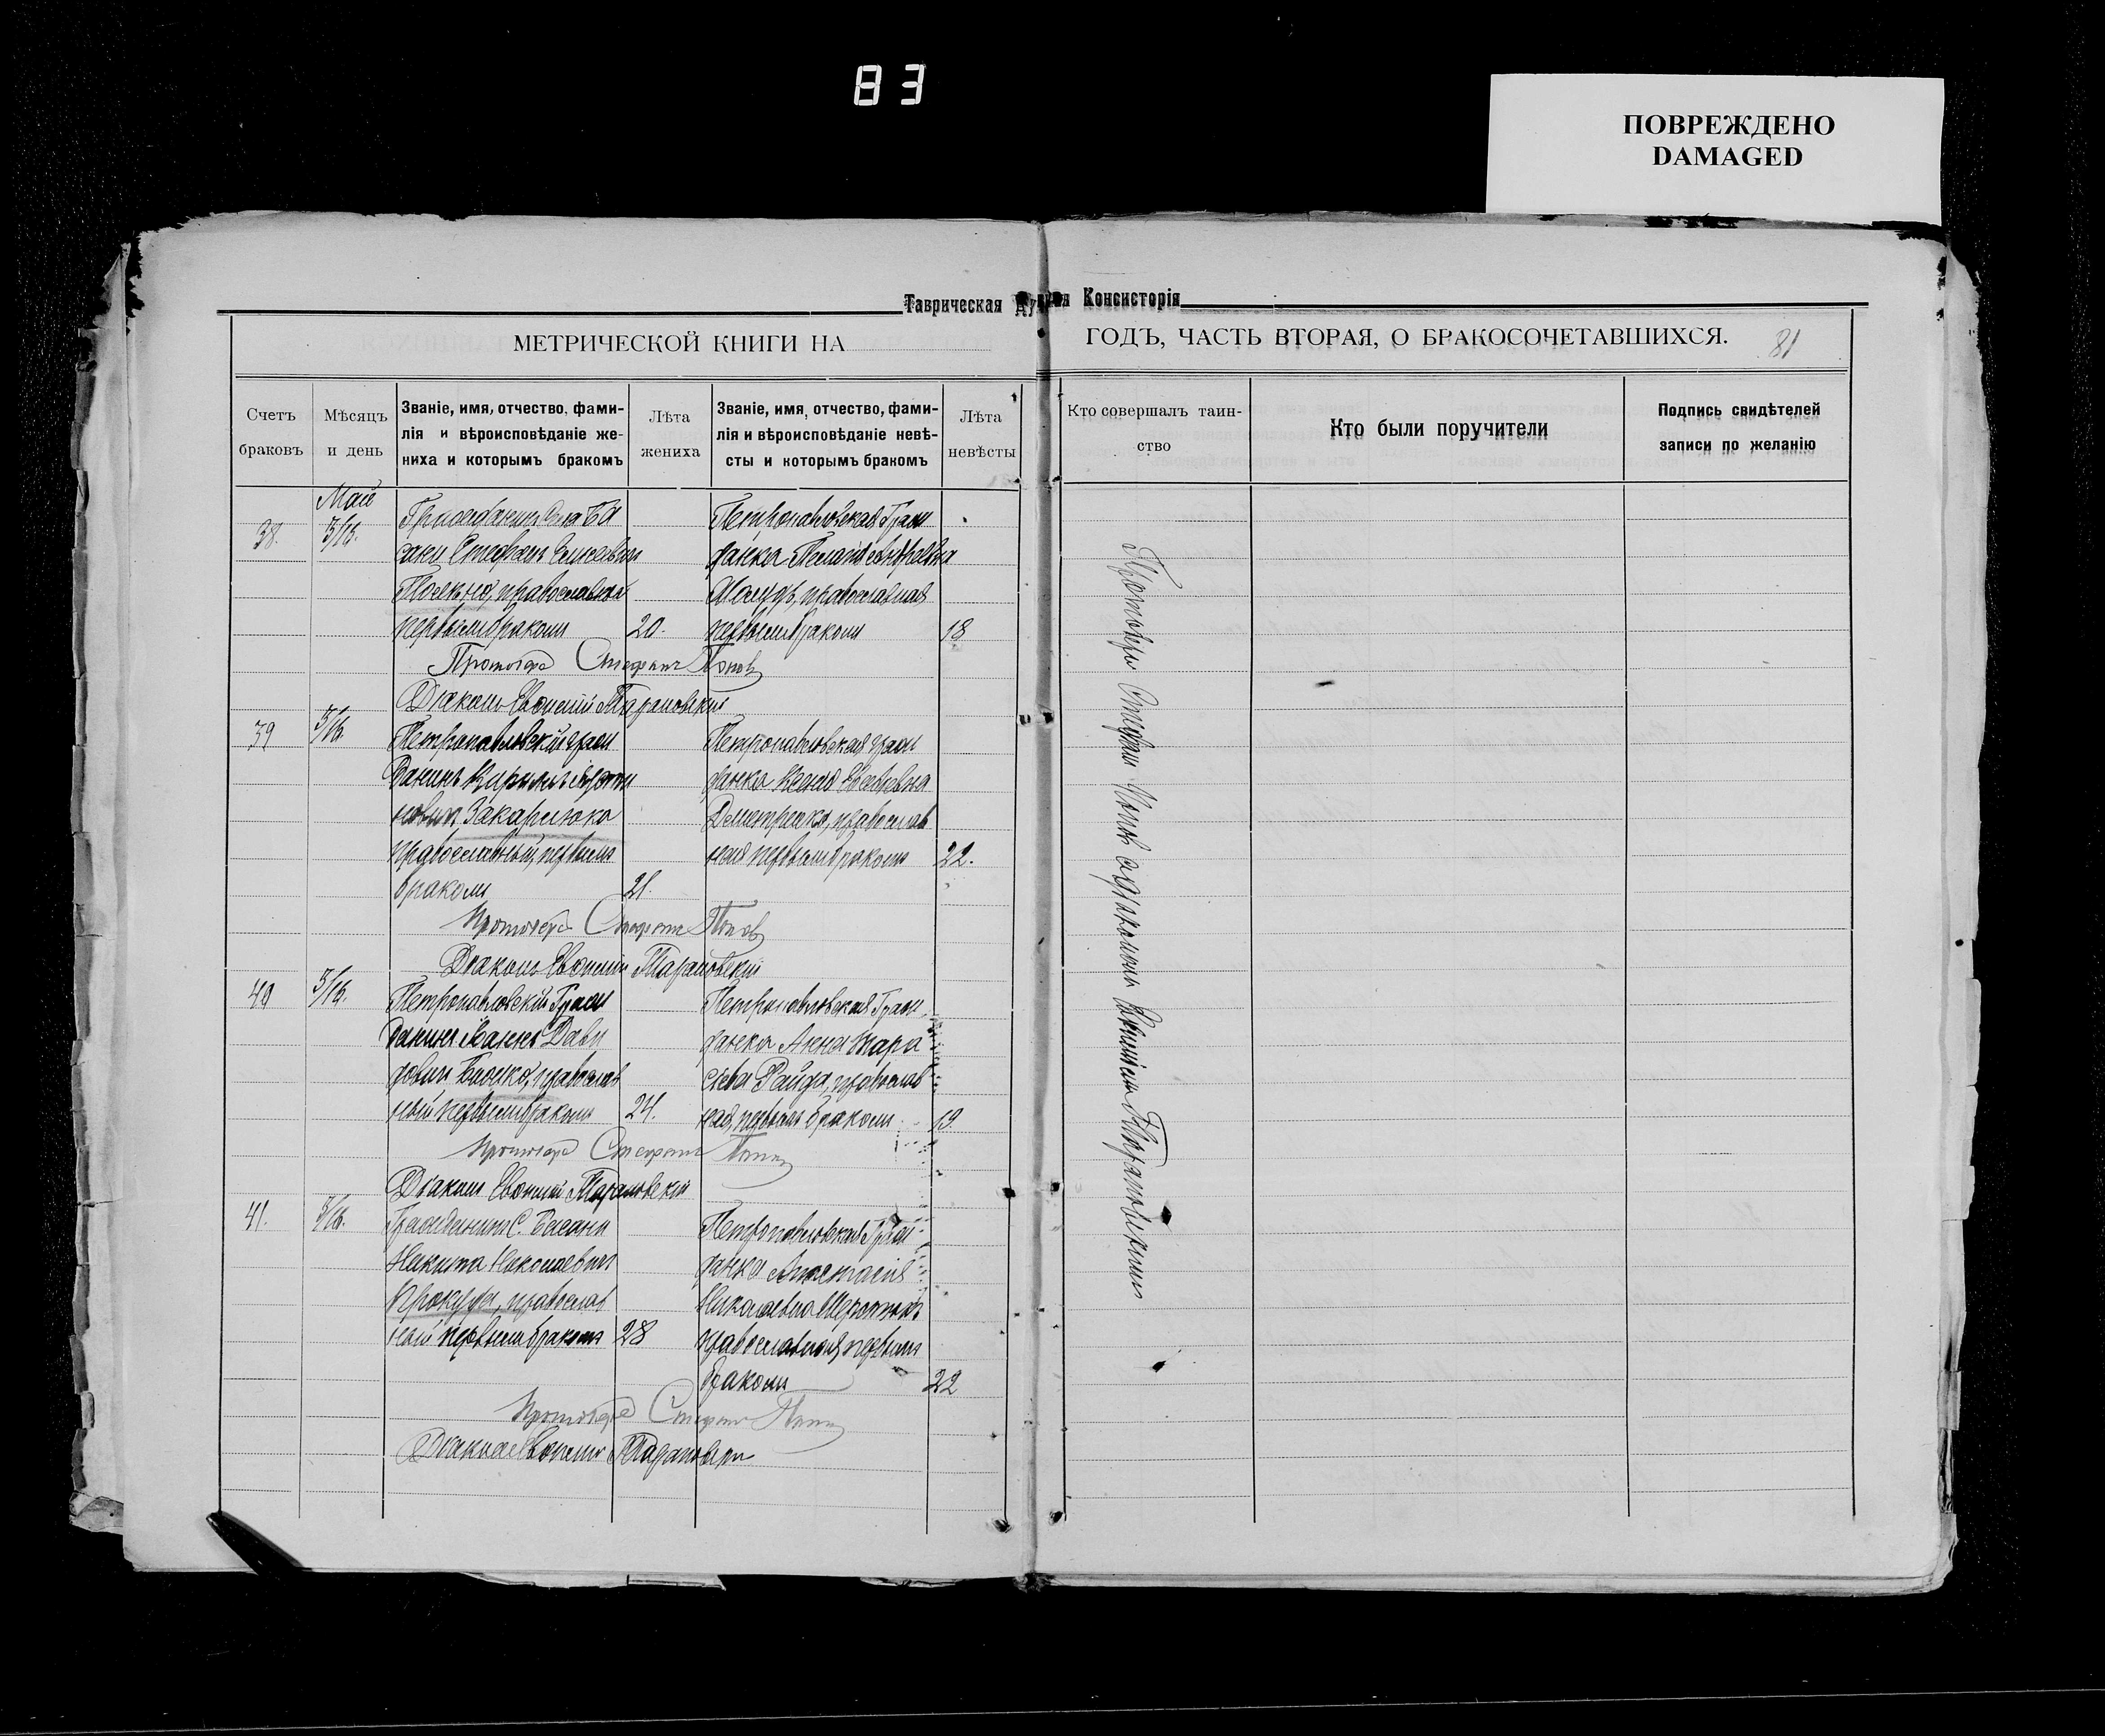 83
ПОВРЕЖДЕНО
DAMAGED
Таврическая Духовная Консисторія
МЕТРИЧЕСКОЙ КНИГИ НА
ГОДЪ, ЧАСТЬ ВТОРАЯ, О БРАКОСОЧЕТАВШИХСЯ.
81
Счетъ браковъ
Мѣсяцъ и день
Званіе, имя, отчество, фами-
лія и вѣроисповѣданіе же-
ниха и которымъ бракомъ
Лѣта жениха
Званіе, имя, отчество, фами-
лія и вѣроисповѣданіе невѣ-
сты и которымъ бракомъ
Лѣта невѣсты
Кто совершалъ таин-
ство
Кто были поручители
Подпись свидѣтелей
записи по желанію
Май
38.
5/16.
Гражданинъ села Ба
сани Стефанъ
православный
первымъ бракомъ
20.
Петропавловская Граж
данка
православная
первымъ бракомъ
18
Протоіерей Стефанъ Попов
Діаконъ Евѳимій Тарановскій
39
5/16.
Петропавловскій граж
данинъ
Закарлюка
православный, первымъ
бракомъ
21.
Петропавловская граж
данка Ксенія
православ
ная первымъ бракомъ
22.
Протоіерей Стефанъ Попов
Діаконъ Евѳимій Тарановскій
40
5/16.
Петропавловскій Граж
данинъ Іоаннъ Дави
довичъ православ
ный первымъ бракомъ
24.
Петропавловская Граж
данка Анна Тара
сіева православ
ная, первымъ бракомъ
19
Протоіерей Стефанъ Попов
Діаконъ Евѳимій Тарановскій
41.
5/16.
Гражданинъ С. Басани
Никита Николаевичъ
Прокура, православ
ный первымъ бракомъ
28
Петропавловская Граж
данка Анастасія
Николаевна
православная, первымъ
бракомъ
22
Протоіерей Стефанъ Попов
Діаконъ Евѳимій Тарановскій
Протоіерей Стефанъ Поповъ съ діакономъ Евѳиміемъ Тарановскимъ